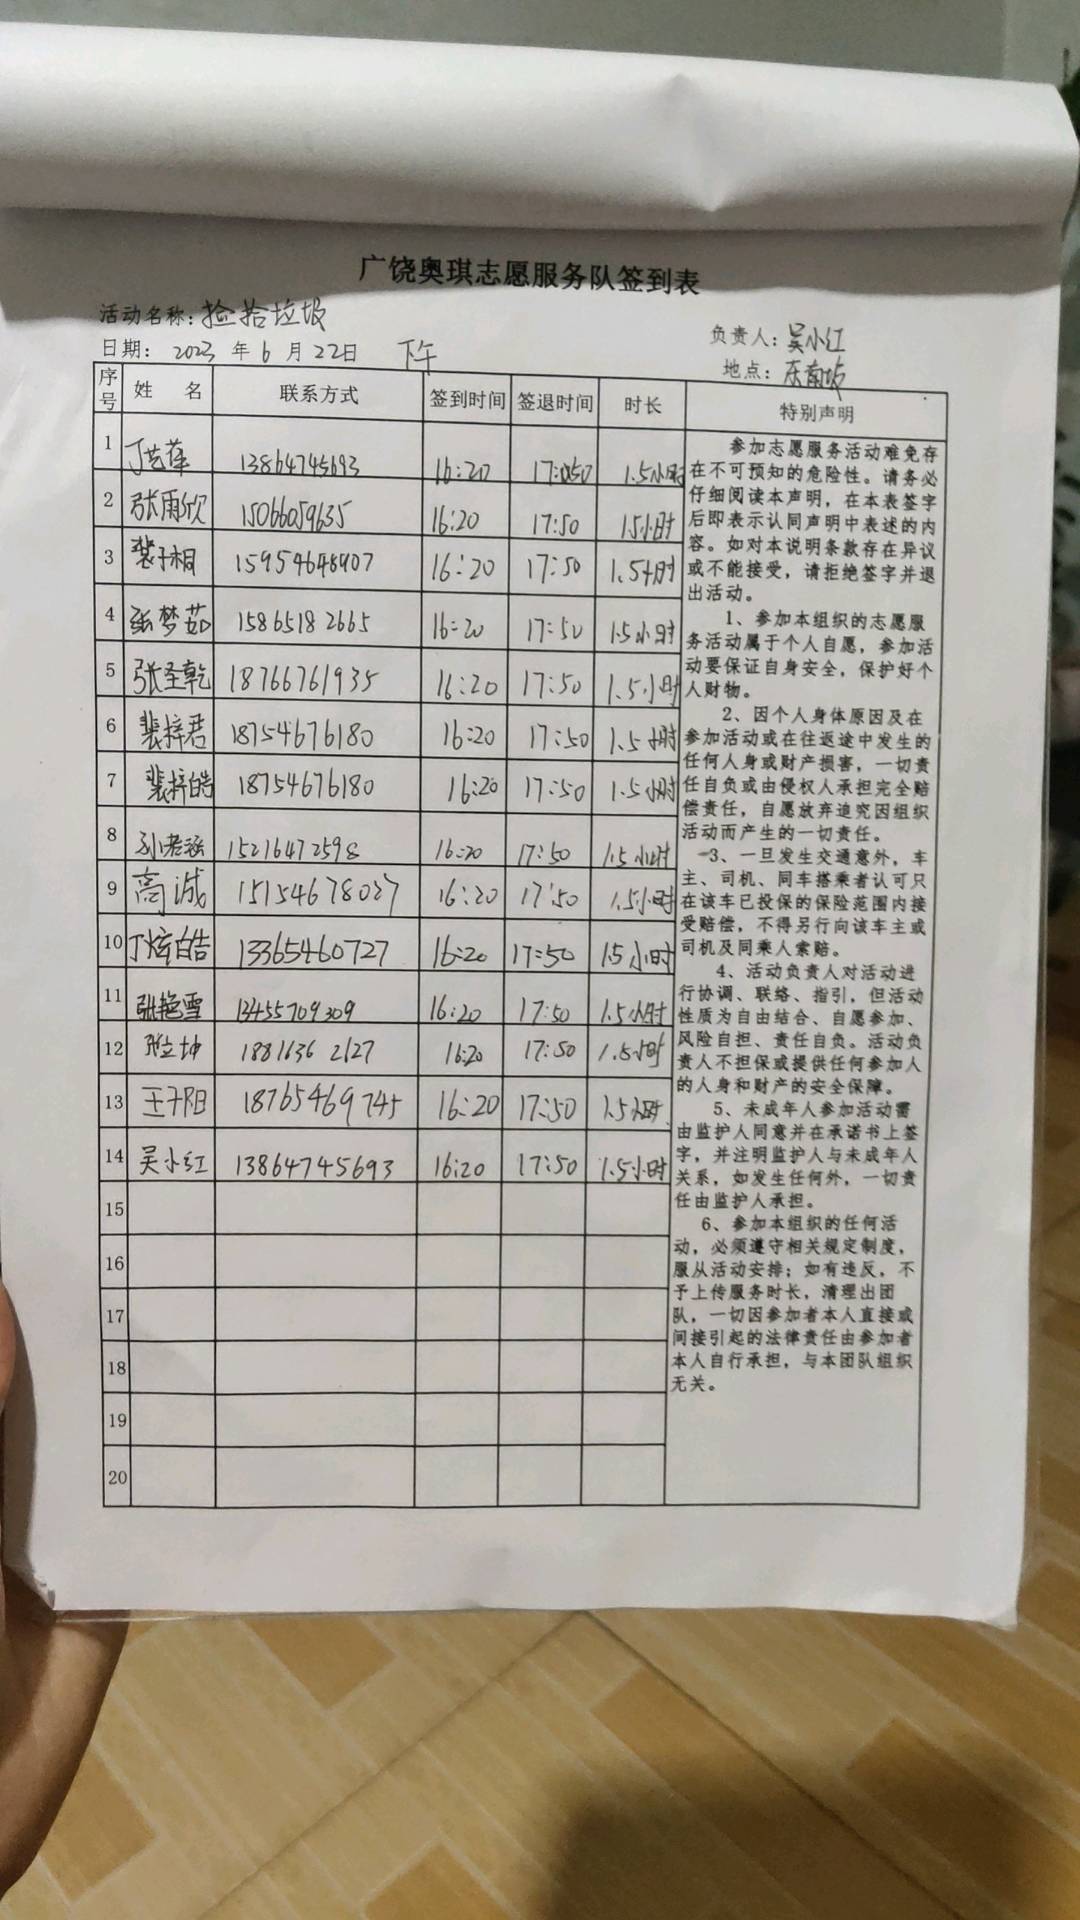 广饶奥琪志愿服务队签到表
活动名称：捡拾垃圾
负责人：吴小红
日期： 2023 年 6 月 22日 下午
地点：东南坞
序号 姓 名 联系方式 签到时间 签退时间 时长 特别声明
1 13864745693 16:20 1.5小时
2 张雨欣 15066059635 16:20 17:50 1.5小时
3 裴子桐 15954648907 16:20 17:50 1.5小时
4 张梦茹 15865182665 16:20 17:50 1.5小时
5 张圣乾 18766761935 16:20 17:50 1.5小时
6 裴梓君 18754676180 16:20 17:50 1.5小时
7 裴梓皓 18754676180 16:20 17:50 1.5小时
8 孙若涵 15216472598 16:20 17:50 1.5小时
9 高诚 15154678027 16:20 17:50 1.5小时
10 丁炫皓 13365460727 16:20 17:50 1.5小时
11 张艳雪 13455709309 16:20 17:50 1.5小时
12 18816362127 16:20 17:50 1.5小时
13 王子阳 18765469745 16:20 17:50 1.5小时
14 吴小红 13864745693 16:20 17:50 1.5小时
15
16
17
18
19
20
参加志愿服务活动难免存
在不可预知的危险性。请务必
仔细阅读本声明，在本表签字
后即表示认同声明中表述的内
容。如对本说明条款存在异议
或不能接受，请拒绝签字并退
出活动。
1、参加本组织的志愿服
务活动属于个人自愿，参加活
动要保证自身安全，保护好个
人财物。
2、因个人身体原因及在
参加活动或在往返途中发生的
任何人身或财产损害，一切责
任自负或由侵权人承担完全赔
偿责任，自愿放弃追究因组织
活动而产生的一切责任。
3、一旦发生交通意外，车
主、司机、同车搭乘者认可只
在该车已投保的保险范围内接
受赔偿，不得另行向该车主或
司机及同乘人索赔。
4、活动负责人对活动进
行协调、联络、指引，但活动
性质为自由结合、自愿参加、
风险自担、责任自负。活动负
责人不担保或提供任何参加人
的人身和财产的安全保障。
5、未成年人参加活动需
由监护人同意并在承诺书上签
字，并注明监护人与未成年人
关系，如发生任何外，一切责
任由监护人承担。
6、参加本组织的任何活
动，必须遵守相关规定制度，
服从活动安排；如有违反，不
予上传服务时长，清理出团
队，一切因参加者本人直接或
间接引起的法律责任由参加者
本人自行承担，与本团队组织
无关。